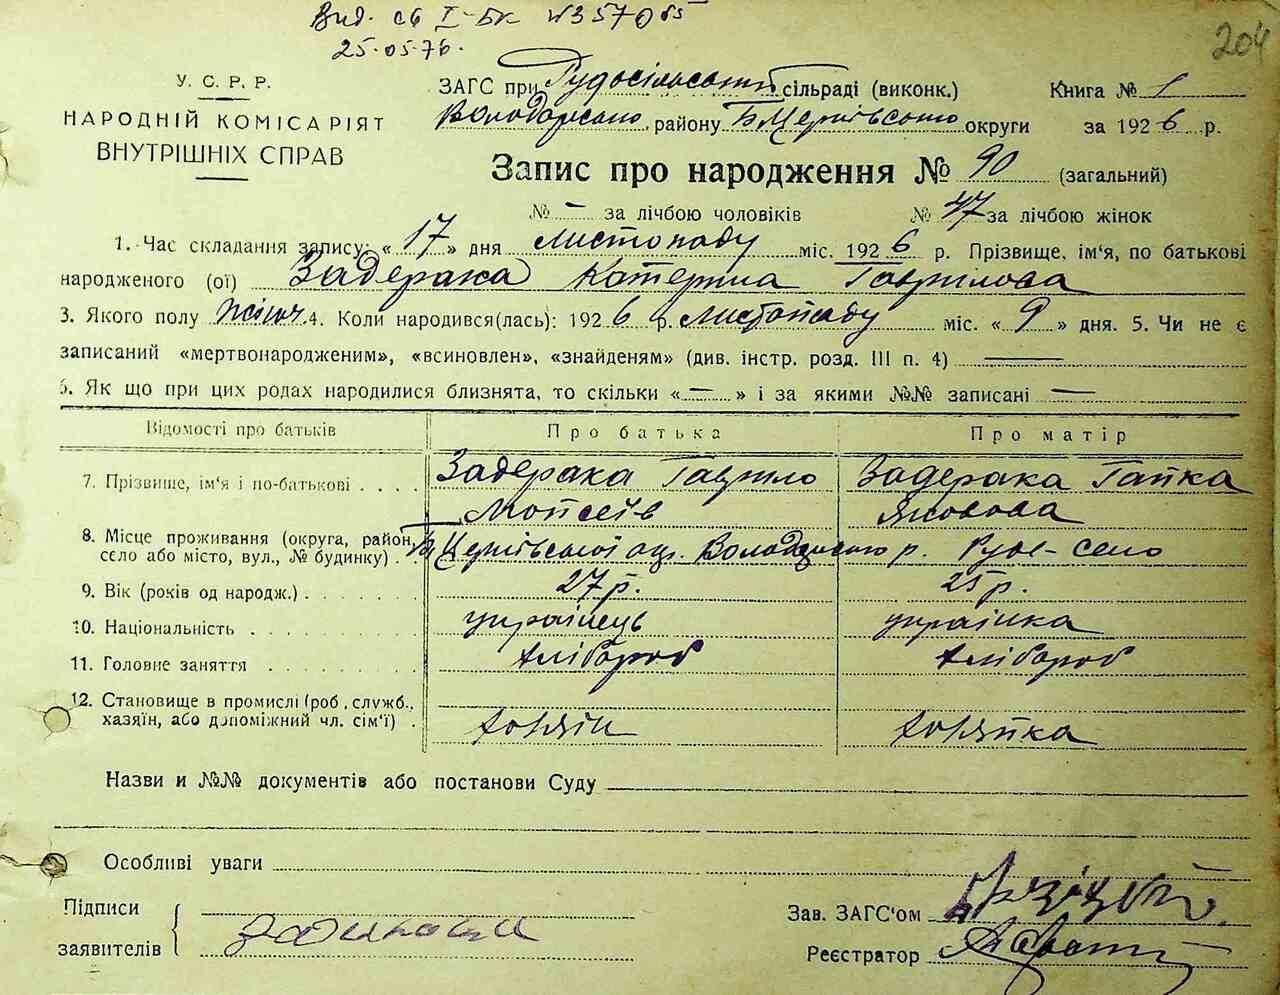 Вид. св I-БК №357085
25.05.76.
204
У.С.Р.Р.
НАРОДНІЙ КОМІСАРІЯТ
ВНУТРІШНІХ СПРАВ
ЗАГС при Рудосільській сільраді (виконк.) Книга № 1
Володарсько району БЦерківсько округи за 1926 р.
Запис про народження № 90 (загальний)
№ — за лічбою чоловіків № 47 за лічбою жінок
1. Час складання запису: «17» дня листопаду міс. 1926 р. Прізвище, ім'я, по батькові
народженого (ої) Задерака Катерина Гаврилова
3. Якого полу жіноч. 4. Коли народився(лась): 1926 р. листопаду міс. «9» дня. 5. Чи не є
записаний «мертвонародженим», «всиновлен», «знайденям» (див. інстр. розд. III п. 4) —
6. Як що при цих родах народилися близнята, то скільки «—» і за якими №№ записані —
Відомості про батьків Про батька Про матір
7. Прізвище, ім'я і по-батькові . . . . Задерака Гаврило Задерака Гапка
Мойсеїв Яковова
8. Місце проживання (округа, район,
село або місто, вул., № будинку) . . Б Церківської окр. Володарсько р. Руде-село
9. Вік (років од народж.) . . . . . . . 27 р. 25 р.
10. Національність . . . . . . . . . українець українка
11. Головне заняття . . . . . . . . хлібороб хлібороб
12. Становище в промислі (роб., служб.,
хазяїн, або допоміжний чл. сім'ї) . хазяїн хазяйка
Назви и №№ документів або постанови Суду
Особливі уваги
Підписи
заявителів
Зав. ЗАГС'ом
Реєстратор